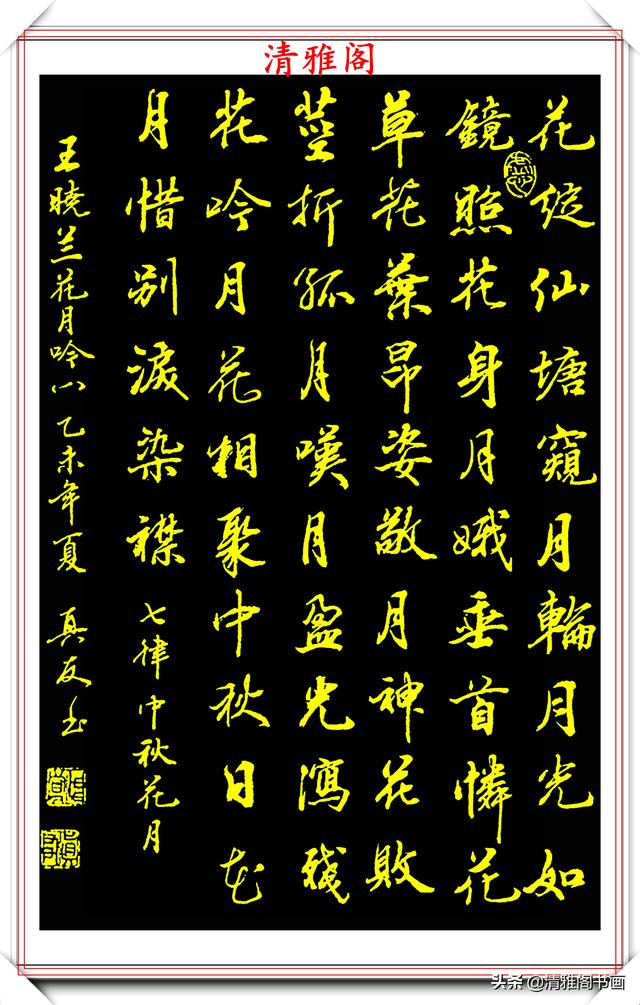 清雅阁
花綻仙塘窺月輪月光如
鏡照花身月娥垂首憐花
草花葉昂姿敬月神花敗
莖折孤月嘆月盈光瀉殘
花吟月花相聚中秋日花
月惜別淚染襟
七律中秋花月
王晓兰花月吟八乙未年夏 真友书
头条@清雅阁书画